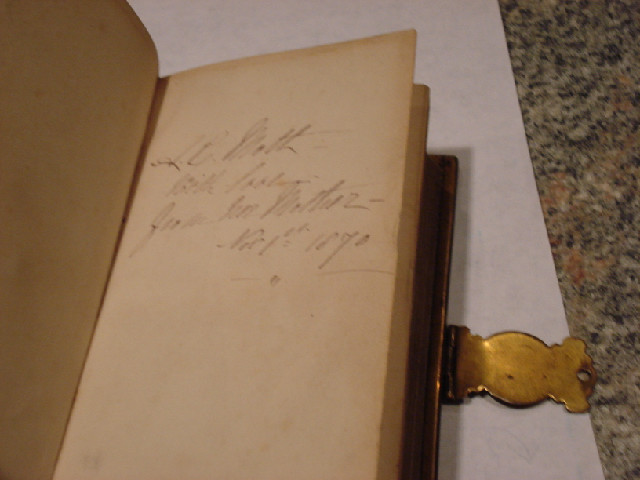 Mott
With love
from her Mother
Nov 1st 1870